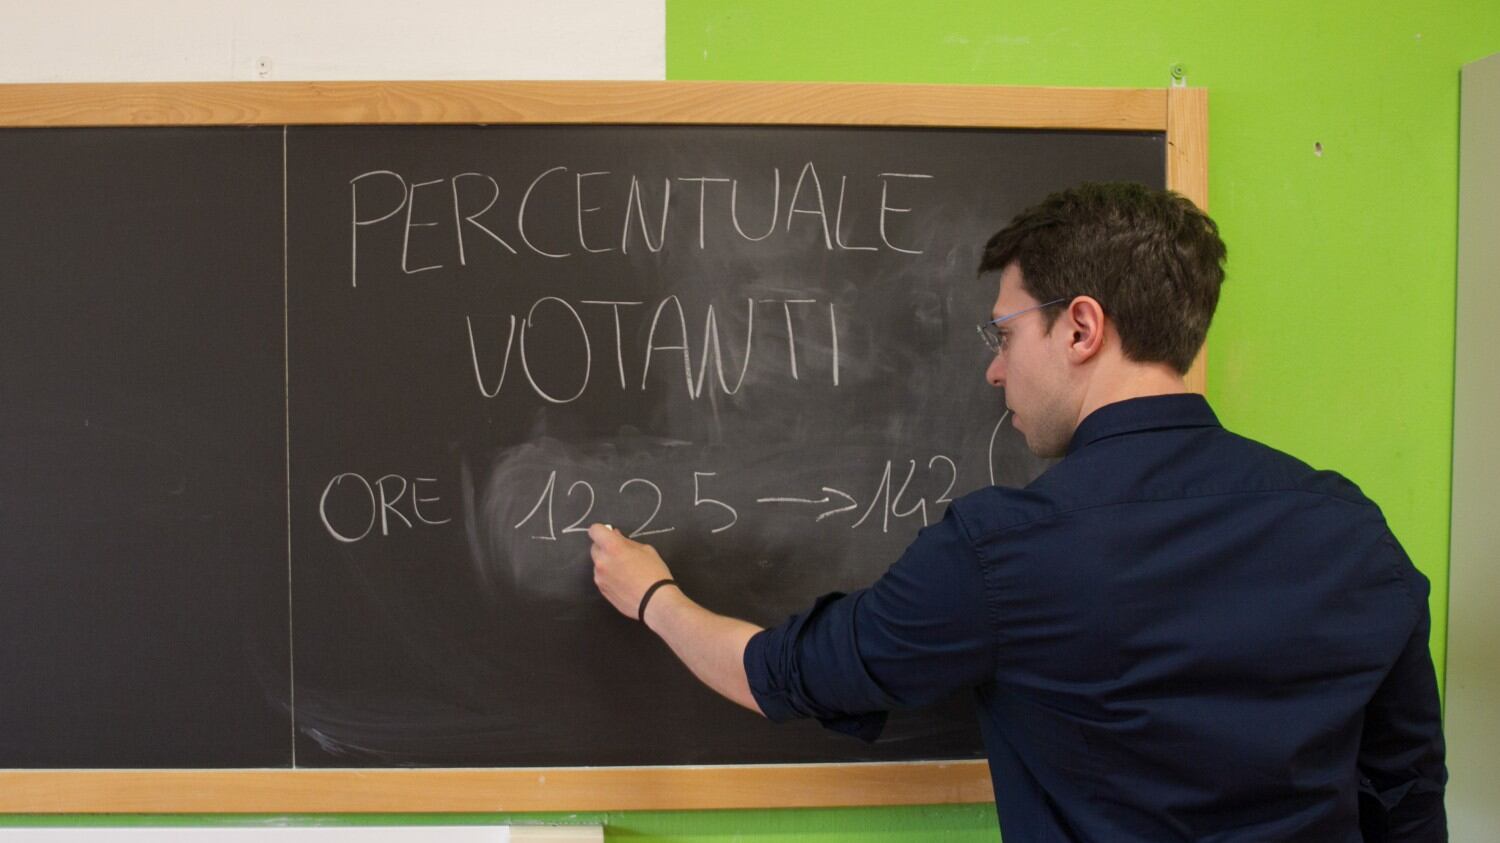 PERCENTUALE
VOTANTI
ORE 12 25 → 142